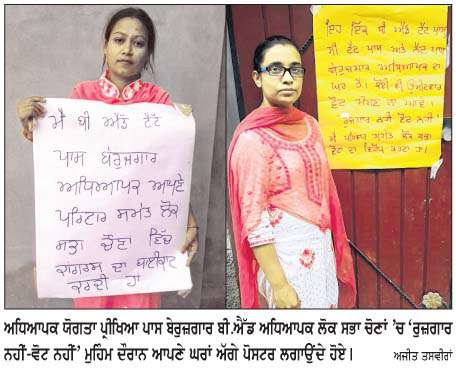 ਮੈਂ ਬੀ ਐਡ ਟੈਟ
ਪਾਸ ਬੇਰੁਜ਼ਗਾਰ
ਅਧਿਆਪਕ ਆਪਣੇ
ਪਰਿਵਾਰ ਸਮੇਤ ਲੋਕ
ਸਭਾ ਚੋਣਾਂ ਵਿੱਚ
ਕਾਂਗਰਸ ਦਾ ਬਾਈਕਾਟ
ਕਰਦੀ ਹਾਂ
ਇਹ ਇੱਕ ਬੀ ਐਡ ਟੈਟ ਪਾਸ
ਬੇਰੁਜ਼ਗਾਰ ਅਧਿਆਪਕ ਦਾ
ਘਰ ਹੈ। ਕੋਈ ਵੀ ਉਮੀਦਵਾਰ
ਵੋਟ ਮੰਗਣ ਨਾ ਆਵੇ।
ਰੁਜ਼ਗਾਰ ਨਹੀਂ ਵੋਟ ਨਹੀਂ
ਮੈਂ ਪਰਿਵਾਰ ਸਮੇਤ ਲੋਕ ਸਭਾ
ਅਧਿਆਪਕ ਯੋਗਤਾ ਪ੍ਰੀਖਿਆ ਪਾਸ ਬੇਰੁਜ਼ਗਾਰ ਬੀ.ਐੱਡ ਅਧਿਆਪਕ ਲੋਕ ਸਭਾ ਚੋਣਾਂ 'ਚ 'ਰੁਜ਼ਗਾਰ
ਨਹੀਂ-ਵੋਟ ਨਹੀਂ' ਮੁਹਿੰਮ ਦੌਰਾਨ ਆਪਣੇ ਘਰਾਂ ਅੱਗੇ ਪੋਸਟਰ ਲਗਾਉਂਦੇ ਹੋਏ।
ਅਜੀਤ ਤਸਵੀਰਾਂ